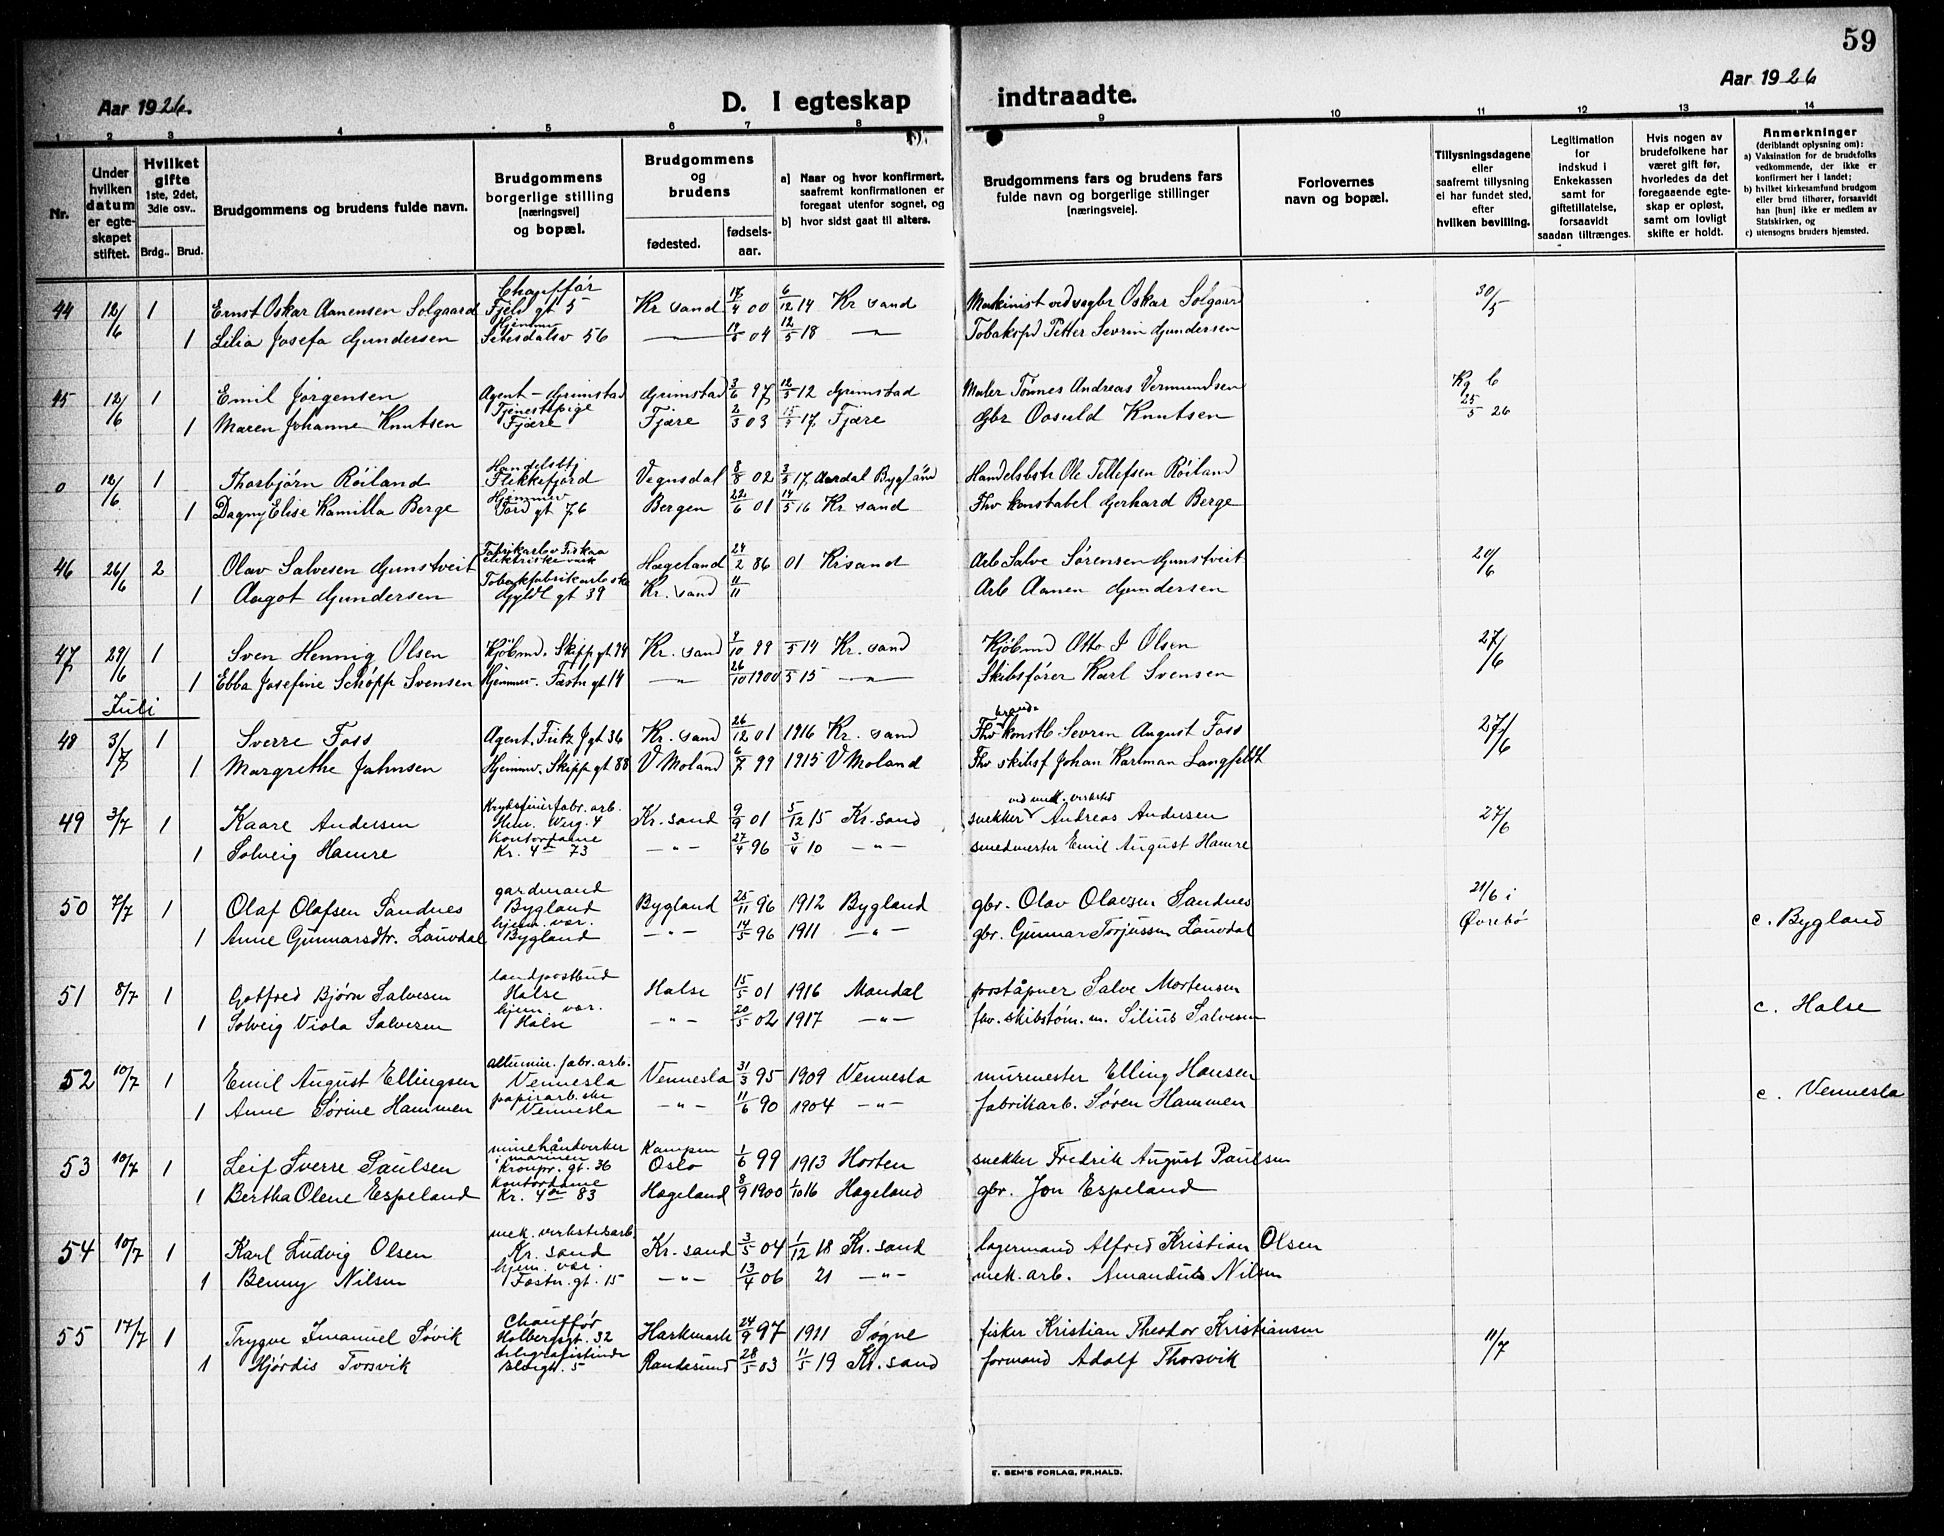 59
Aar 1926.
D. I egteskap indtraadte.
Aar 1926
1 2 3 4 5 6 7 8 9 10 11 12 13 14
Nr.
Under hvilken datum er egteskapet stiftet.
Hvilket gifte 1ste, 2det, 3die osv..
Brdg.. Brud.
Brudgommens og brudens fulde navn.
Brudgommens borgerlige stilling [næringsvei] og bopæl.
Brudgommens og brudens
fødested. fødselsaar.
a) Naar og hvor konfirmert, saafremt konfirmationen er foregaat utenfor sognet, og
b) hvor sidst gaat til alters.
Brudgommens fars og brudens fars fulde navn og borgerlige stillinger [næringsveie].
Forlovernes navn og bopæl.
Tillysningsdagene eller saafremt tillysning ei har fundet sted, efter hvilken bevilling.
Legitimation for indskud i Enkekassen samt for giftetillatelse, forsaavidt saadan tiltrænges.
Hvis nogen av brudefolkene har været gift før, hvorledes da det foregaaende egteskap er opløst, samt om lovligt skifte er holdt.
Anmerkninger (deriblandt oplysning om):
a) Vaksination for de brudefolks vedkommende, der ikke er konfirmert her i landet;
b) hvilket kirkesamfund brudgom eller brud tilhører, forsaavidt han [hun] ikke er medlem av Statskirken, og
c) utensogns bruders hjemsted.
44 12/6 1 Ernst Oskar Aanensen Solgaard Chauffør Fjeld gt 5 Kr sand 17/4 00 6/12 14 Kr. sand Maskinist ved Oskar Solgaard 30/5
1 Lilia Josefa Gundersen Hjemmev Setesdalsv 56 — 14/5 04 12/5 18 — Tobaksfd Petter Sevrin Gundersen
45 12/6 1 Emil Jørgensen Agent - Grimstad Grimstad 3/6 97 12/5 12 Grimstad Maler Tønnes Andreas Vermundsen Kg b 25/5 26
1 Maren Johanne Knutsen Tjenestepige Fjære Fjære 2/3 03 15/5 17 Fjære Gbr Oosuld Knutsen
0 12/6 1 Thorbjørn Röiland Handelsbtj Flekkefjord Vegusdal 8/8 02 3/5 17 Aardal Bygland Handelsbstr Ole Tellefsen Röiland
1 Dagny Elise Kamilla Berge Hjemmev Tord gt 76 Bergen 22/6 01 14/5 16 Kr sand Fhv konstabel Gerhard Berge
46 26/6 2 Olav Salvesen Gunstveit Fabrikarb v Fiskaa elektriske verk Hægeland 24/2 86 01 Kr sand Arb Salve Sørensen Gunstveit 20/6
1 Aagot Gundersen Tobakfabrikarb ske Gyldl gt 39 Kr. sand 11/11 Arb Aanen Gundersen
47 29/6 1 Sven Hennig Olsen Kjøbmd. Skipp gt 94 Kr. sand 9/10 99 /5 14 Kr. sand Kjøbmd Otto J Olsen 27/6
1 Ebba Josefine Schöpp Svensen Hjemmev. Fæstn gt 14 — " — 26/10 1900 /5 15 — " — Skibsfører Karl Svensen
Juli
48 3/7 1 Sverre Foss Agent. Fritz J gt 36 Kr. sand 26/12 01 1916 Kr. sand Fhv brands konstb Sevrin August Foss 27/6
1 Margrethe Jahnsen Hjemmev. Skipp gt 88 V Moland 6/7 99 1915 V Moland Fhv skibsf Johan Karlman Langfeldt
49 3/7 1 Kaare Andersen Krydsfinerfabr. arb. Hen. Werg. 4 Kr. sand 9/9 01 5/12 15 Kr. sand snekker ved mek. verksted Andreas Andersen 27/6
1 Solveig Hamre Kontordame Kr. 4de 73 — " — 27/4 96 3/4 10 — " — smedmester Emil August Hamre
50 7/7 1 Olaf Olafsen Sandnes gardmand Bygland Bygland 25/11 96 1912 Bygland gbr. Olav Olavsen Sandnes 21/6 i Øvrebø c. Bygland
1 Anne Gunnarsdtr. Lauvdal hjem. vær. Bygland — " — 14/5 96 1911 — " — gbr. Gunnar Torjussen Lauvdal
51 8/7 1 Gotfred Bjørn Salvesen landpostbud Halse Halse 15/5 01 1916 Mandal poståpner Salve Mortensen c. Halse
1 Solveig Viola Salvesen hjem. vær. Halse — " — 20/5 02 1917 — " — fhv. skibstøm. m. Silius Salvesen
52 10/7 1 Emil August Ellingsen allumin. fabr. arb. Vennesla Vennesla 31/3 95 1909 Vennesla murmester Elling Hansen c. Vennesla
1 Anne Sørine Hammen papirarb. ske Vennesla — " — 11/6 90 1904 — " — fabrikarb. Søren Hammen
53 10/7 1 Leif Sverre Paulsen minehåndverker i marinen Kronpr. gt. 36 Kampen Oslo 1/6 99 1913 Horten snekker Fredrik August Paulsen
1 Bertha Olene Espeland Kontordame Kr. 4de 83 Hægeland 8/9 1900 1/10 16 Hægeland gbr. Jon Espeland
54 10/7 1 Karl Ludvig Olsen mek. verkstedsarb. Kr. sand Kr. sand 3/5 04 1/12 18 Kr. sand lagermand Alfred Kristian Olsen
1 Benny Nilsen hjem. vær. Fæstn. gt. 15 — " — 13/4 06 21 — " — mek. arb. Amandus Nilsen
55 17/7 1 Trygve Imanuel Søvik Chauffør Holbergsgt. 32 Harkmark 24/9 97 1911 Søgne fisker Kristian Theodor Kristiansen 11/7
1 Hjørdis Torsvik telegrafistinde Elvegt. 5 Randesund 28/5 03 11/5 19 Kr. sand formand Adolf Thorsvik
F. SEM'S FORLAG, FR.HALD.